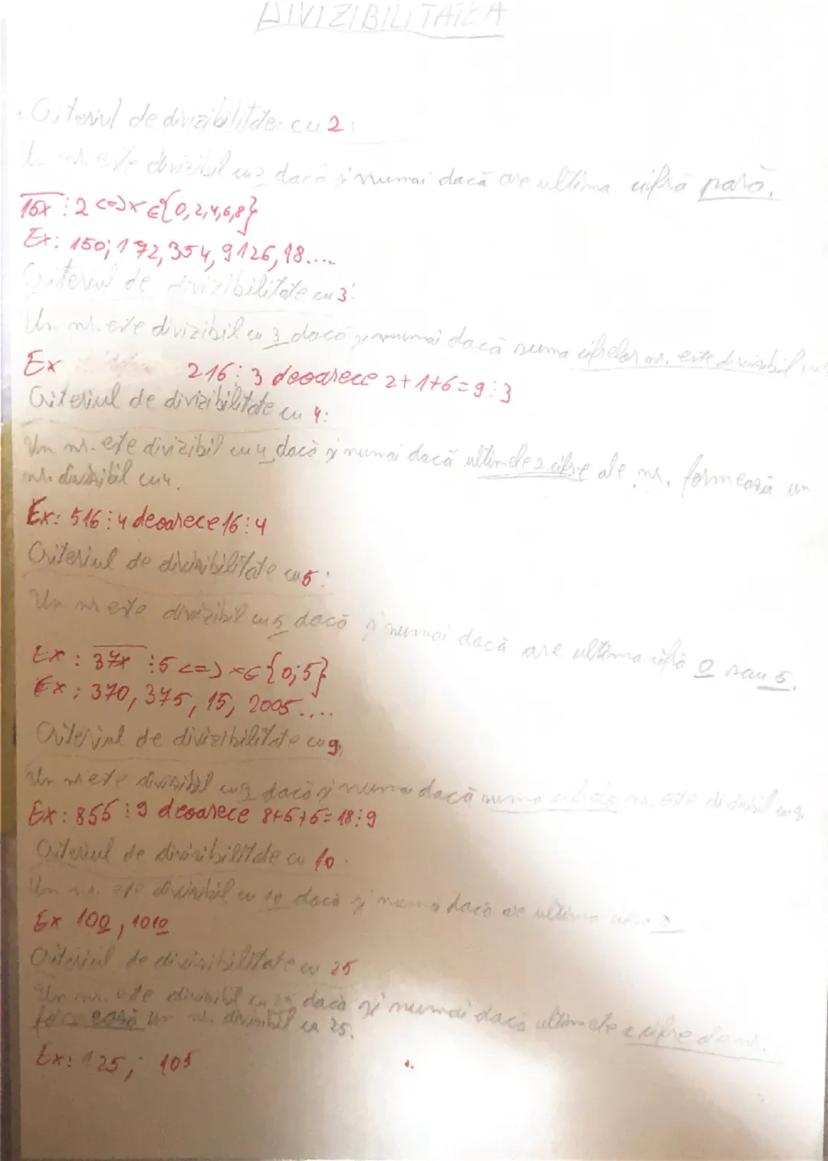 DIVIZIBILITATEA
Criteriul de divizibilitate cu 2:
Un nr. este divizibil cu 2 dacă și numai dacă are ultima cifră pară.
15x ⋮ 2 <=> x ∈ {0,2,4,6,8}
Ex: 150; 172, 354, 9126, 18....
Criteriul de divizibilitate cu 3:
Un nr. este divizibil cu 3 dacă și numai dacă suma cifrelor nr. este divizibil cu
Ex 216 ⋮ 3 deoarece 2+1+6=9 ⋮ 3
Criteriul de divizibilitate cu 4:
Un nr. este divizibil cu 4 dacă și numai dacă ultimele 2 cifre ale nr. formează un
nr. divizibil cu 4.
Ex: 516 ⋮ 4 deoarece 16 ⋮ 4
Criteriul de divizibilitate cu 5:
Un nr este divizibil cu 5 dacă și numai dacă are ultima cifră 0 sau 5.
Ex: 37x ⋮ 5 <=> x ∈ {0;5}
Ex: 370, 375, 15, 2005....
Criteriul de divizibilitate cu 9
Un nr este divizibil cu 9 dacă și numai dacă suma cifrelor nr. este divizibil cu 9
Ex: 855 ⋮ 9 deoarece 8+5+5=18 ⋮ 9
Criteriul de divizibilitate cu 10
Un nr. este divizibil cu 10 dacă și numai dacă are ultima cifră 0
Ex 100, 1010
Criteriul de divizibilitate cu 25
Un nr. este divizibil cu 25 dacă și numai dacă ultimele 2 cifre ale nr.
formează un nr. divizibil cu 25.
Ex: 125; 105